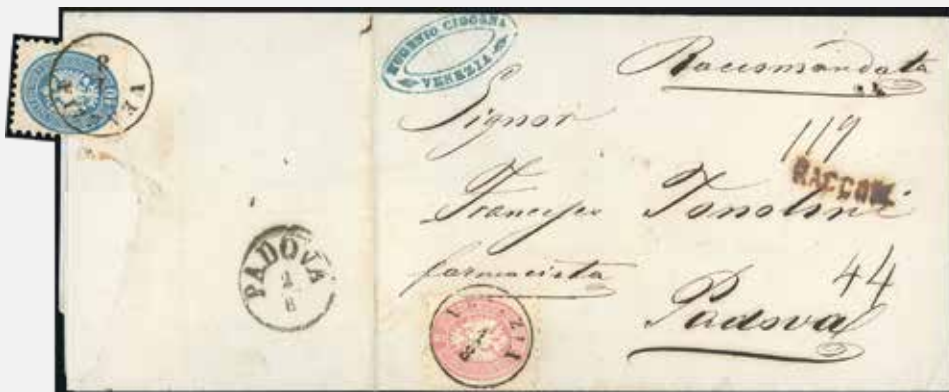 EUGENIO CICOGNA
VENEZIA
Raccomandata
Signor
119
RACCOM.
Francesco Tonolini
farmacista
44
Padova
PADOVA
2
8
VENEZIA
8
VENEZIA
8